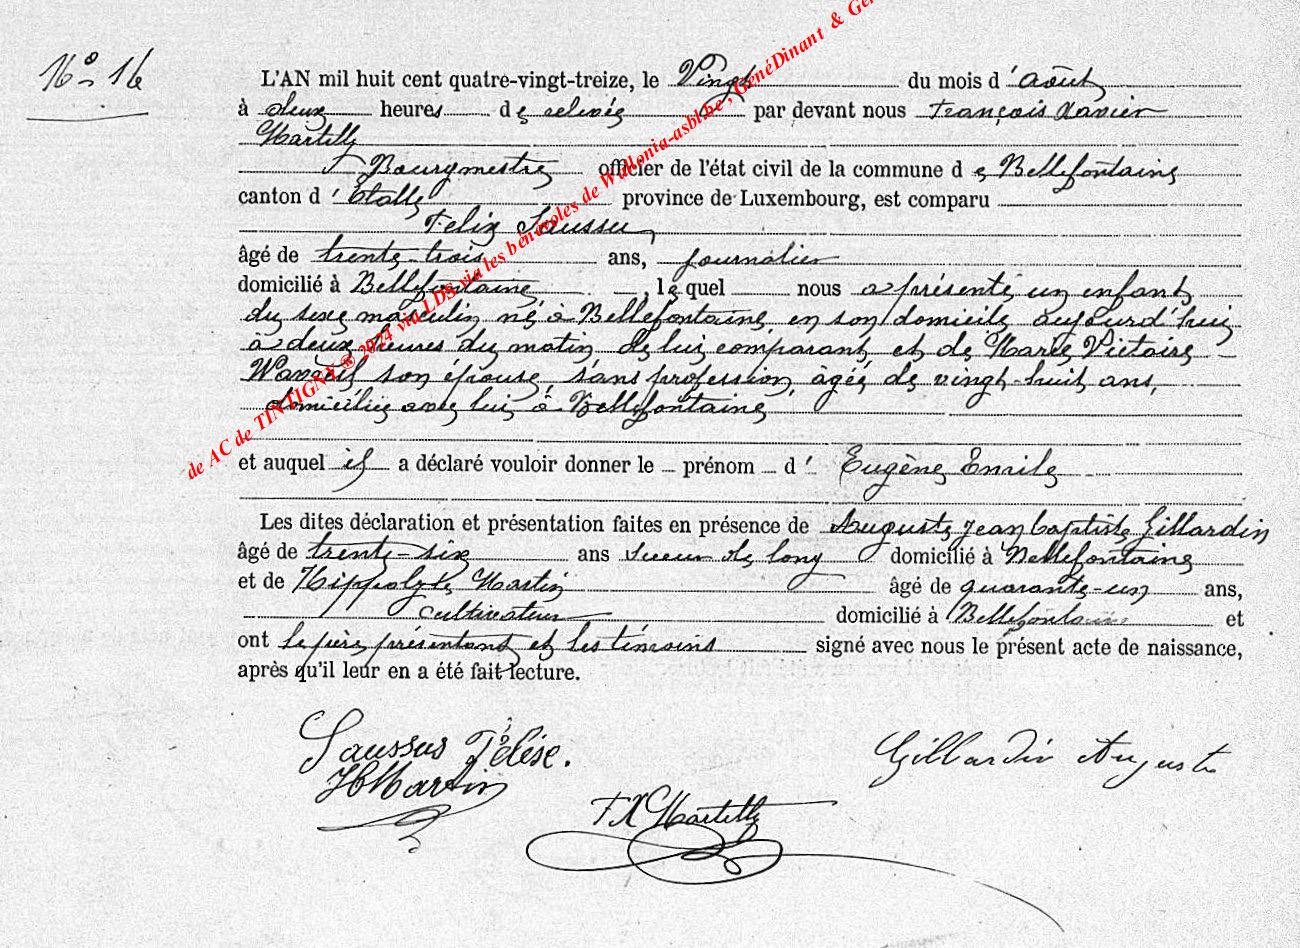 N° 16
L'AN mil huit cent quatre-vingt-treize, le Vingt du mois d'août
à deux heures de relevée par devant nous François Xavier
Martilly
Bourgmestre officier de l'état civil de la commune de Bellefontaine
canton d'Etalle province de Luxembourg, est comparu
Felix Saussu
âgé de trente-trois ans, journalier
domicilié à Bellefontaine, lequel nous a présenté un enfant
du sexe masculin, né à Bellefontaine, en son domicile aujourd'hui
à deux heures du matin, de lui comparant, et de Marie Victoire
son épouse, sans profession, âgée de vingt-huit ans,
domiciliée avec lui à Bellefontaine
et auquel il a déclaré vouloir donner le prénom d'Eugène Emile
Les dites déclaration et présentation faites en présence de Auguste Jean Baptiste Gillardin
âgé de trente-six ans scieur de long domicilié à Bellefontaine
et de Hippolyte Martin âgé de quarante-un ans,
cultivateur domicilié à Bellefontaine et
ont le père présentant et les témoins signé avec nous le présent acte de naissance,
après qu'il leur en a été fait lecture.
Saussus
Gillardin Auguste
H Martin
F X Martilly
de AC de TINTIGNY ® 2024 via LDS via les bénévoles de Wallonia-asbl.be, GenéDinant & Ge